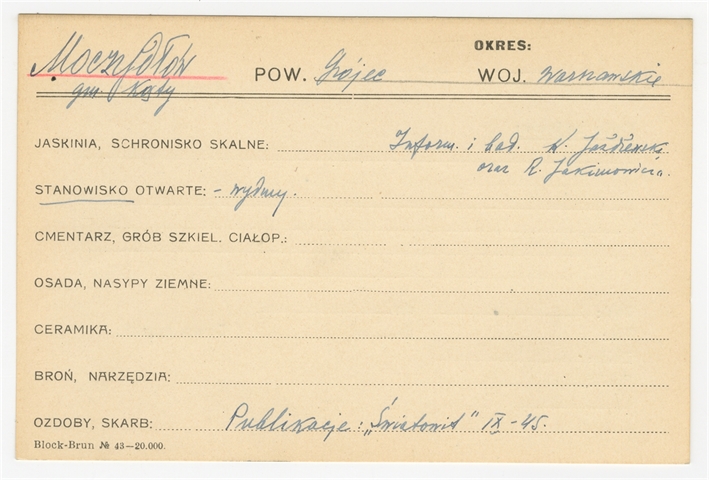 OKRES:
Moczydłów POW. Grójec WOJ. Warszawskie
gm. Kąty
JASKINIA, SCHRONISKO SKALNE: Inform. i bad. K. Jażdżewsk.
oraz R. Jakimowicza.
STANOWISKO OTWARTE: – wydmy.
CMENTARZ, GRÓB SZKIEL. CIAŁOP.:
OSADA, NASYPY ZIEMNE:
CERAMIKA:
BROŃ, NARZĘDZIA:
OZDOBY, SKARB: Publikacje: „Światowit" IX-45.
Block-Brun № 43—20.000.